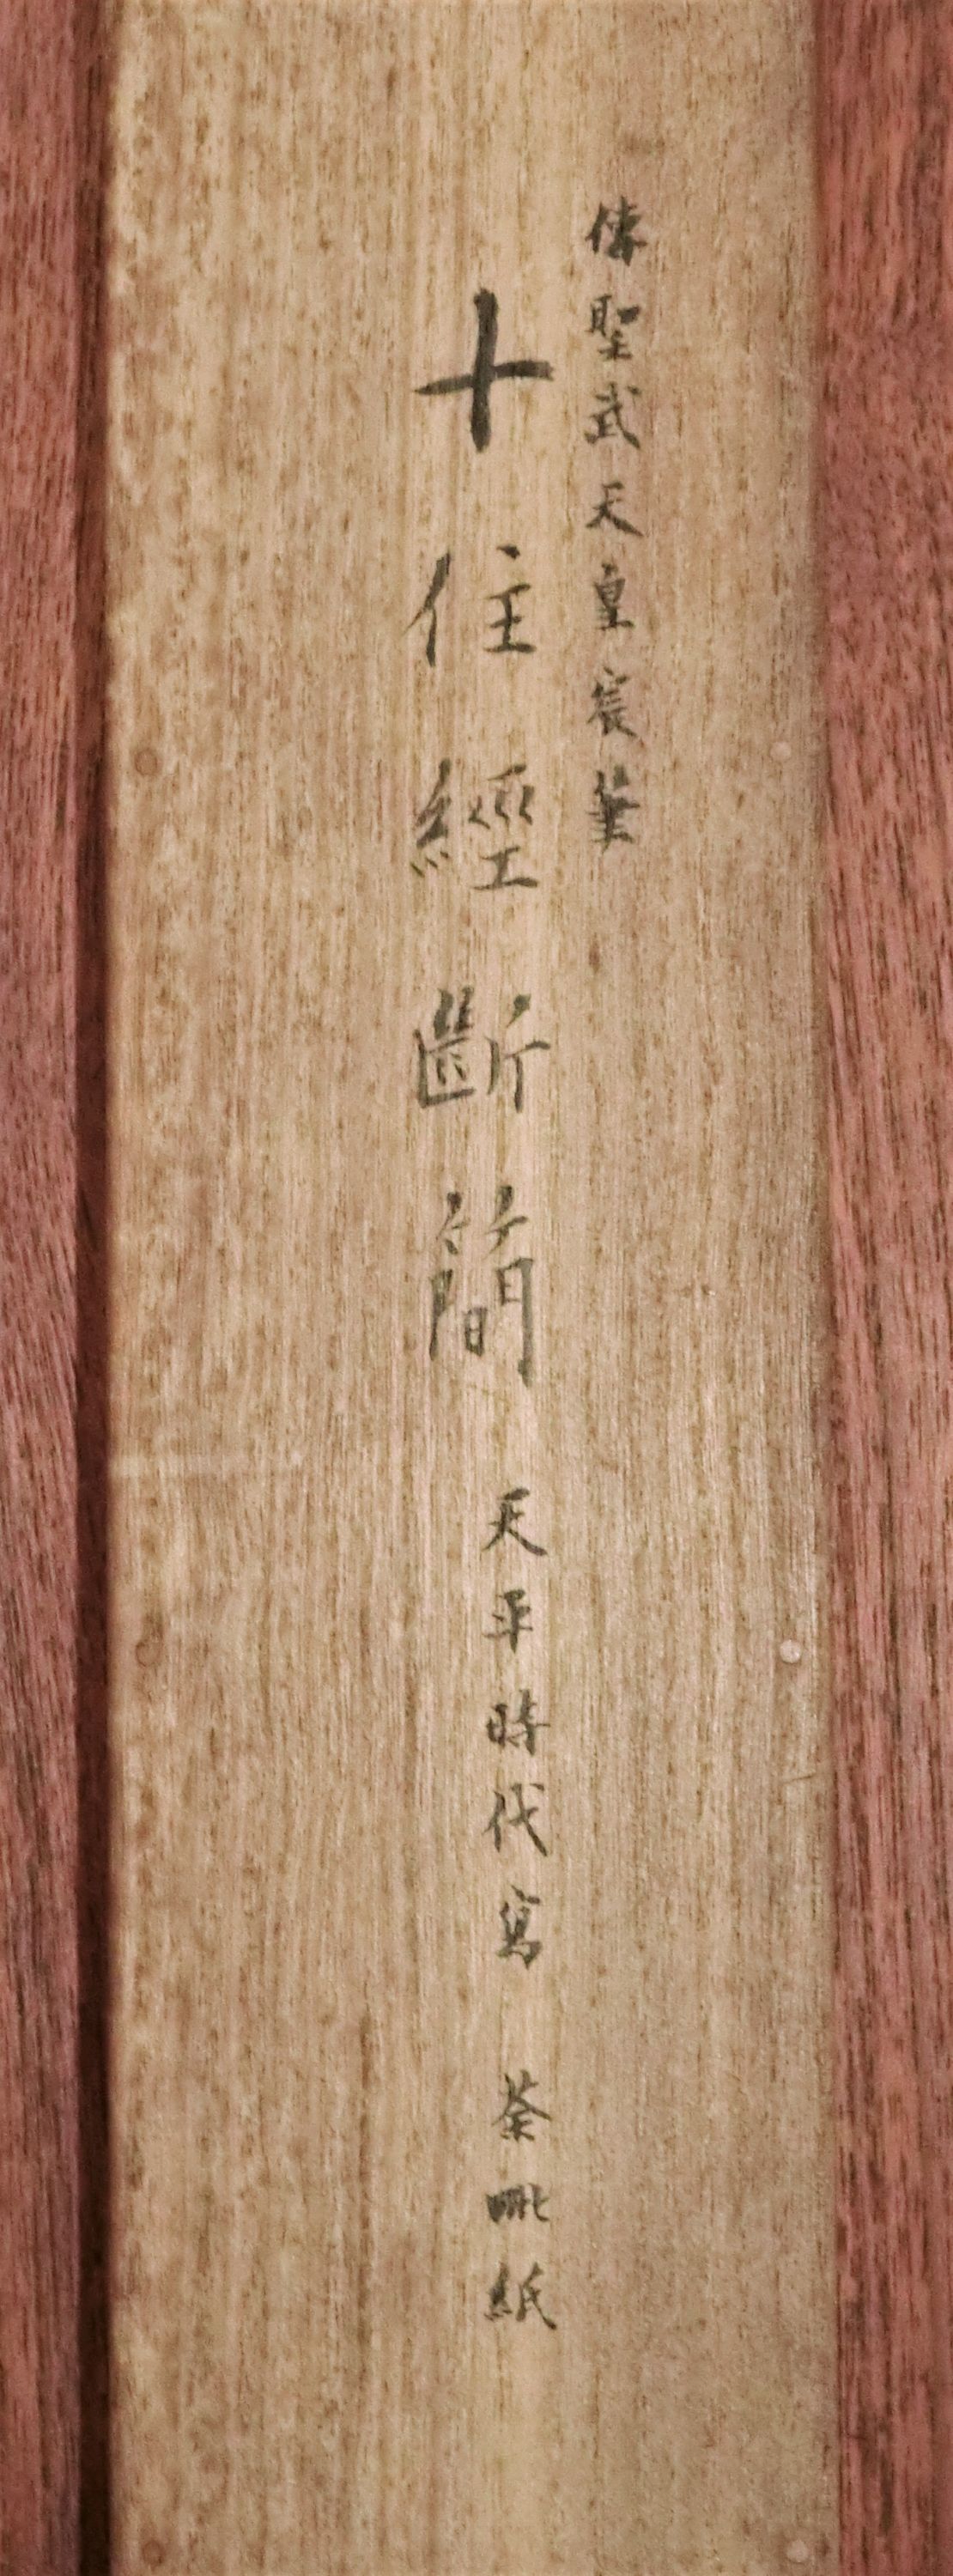 傳聖武天皇宸筆
十住經斷簡 天平時代寫 荼毗紙